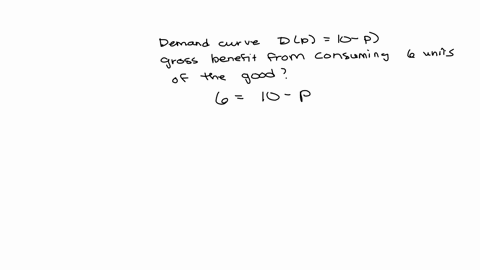 Demand curve D(p) = 10-p)
gross benefit from consuming 6 units
of the good?
6 = 10-p